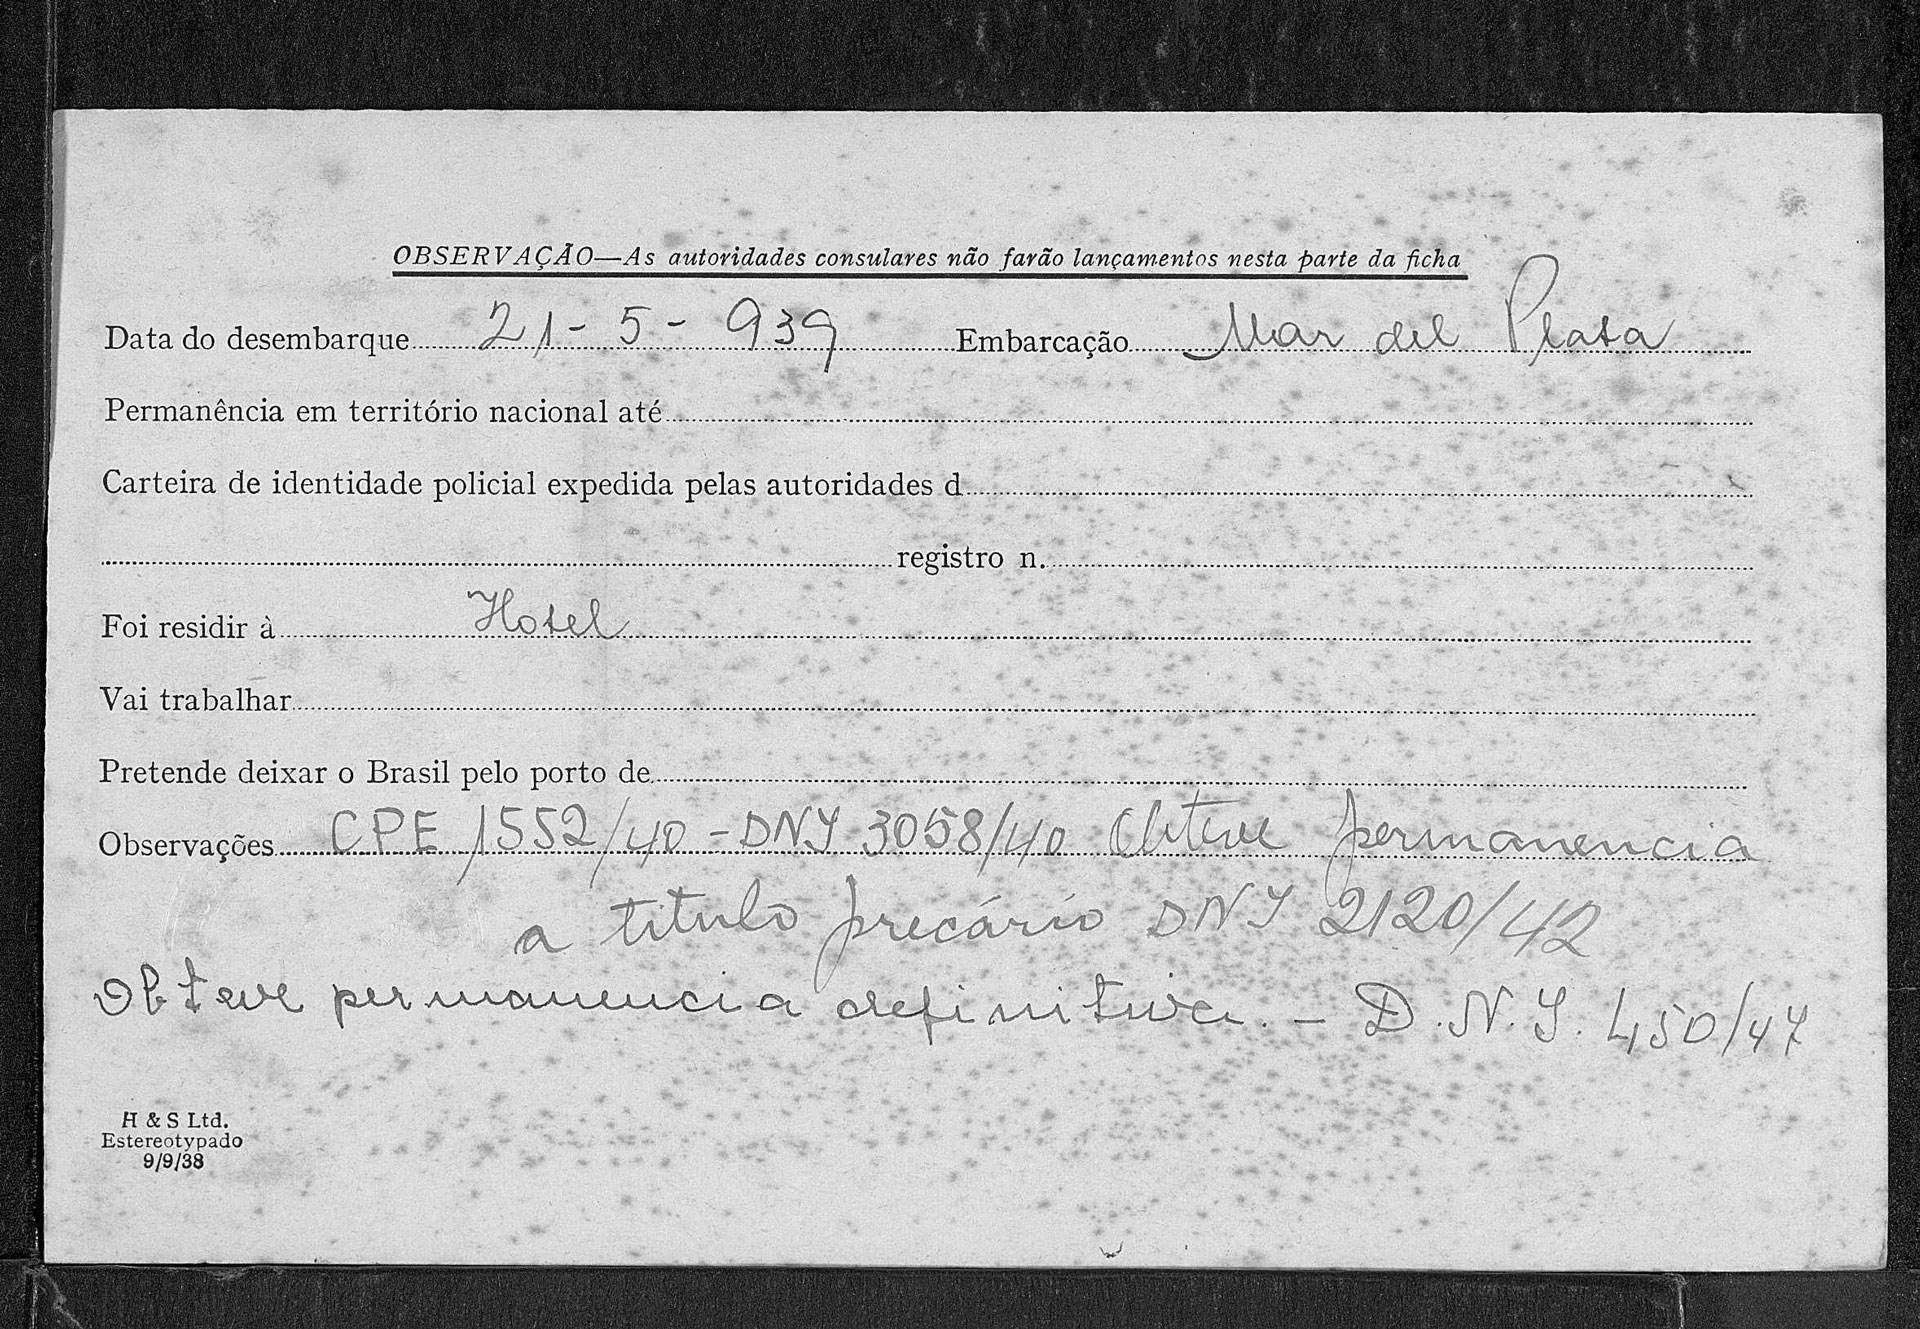 OBSERVAÇÃO—As autoridades consulares não farão lançamentos nesta parte da ficha
Data do desembarque 21-5-939 Embarcação Mar del Plata
Permanência em território nacional até
Carteira de identidade policial expedida pelas autoridades d
registro n.
Foi residir à Hotel
Vai trabalhar
Pretende deixar o Brasil pelo porto de
Observações CPE 1552/40 - DNI 3058/40 Obteve permanencia
a titulo precário DNI 2120/42
Obteve permanencia definitiva. - D.N.I. 450/47
H & S Ltd.
Estereotypado
9/9/38